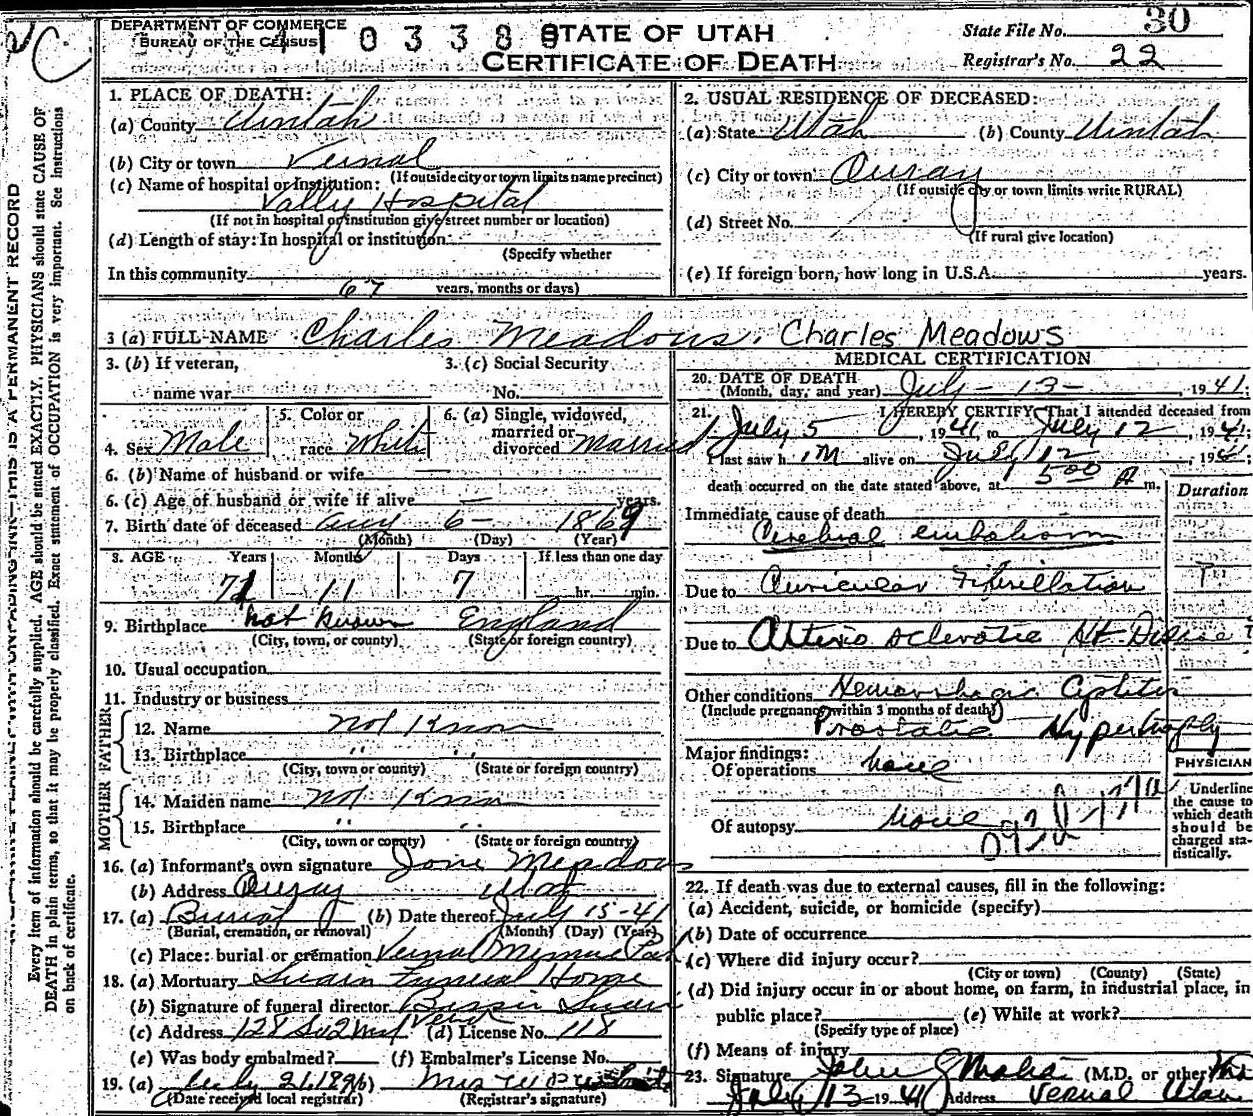 DEPARTMENT OF COMMERCE
BUREAU OF THE CENSUS
STATE OF UTAH
CERTIFICATE OF DEATH
State File No. 30
Registrar's No. 22
1. PLACE OF DEATH:
(a) County Uintah
(b) City or town Vernal
(If outside city or town limits name precinct)
(c) Name of hospital or Institution:
Vally Hospital
(If not in hospital or institution give street number or location)
(d) Length of stay: In hospital or institution
(Specify whether
In this community 67
years, months or days)
2. USUAL RESIDENCE OF DECEASED:
(a) State Utah (b) County Uintah
(c) City or town Ouray
(If outside city or town limits write RURAL)
(d) Street No.
(If rural give location)
(e) If foreign born, how long in U.S.A. years.
3 (a) FULL NAME Charles Meadows. Charles Meadows
3. (b) If veteran, 3. (c) Social Security
name war No.
4. Sex Male 5. Color or race White 6. (a) Single, widowed, married or divorced Married
6. (b) Name of husband or wife —
6. (c) Age of husband or wife if alive — years.
7. Birth date of deceased Aug 6 - 1869
(Month) (Day) (Year)
8. AGE Years Months Days If less than one day
71 11 7 hr. min.
9. Birthplace not known England
(City, town, or county) (State or foreign country)
10. Usual occupation
11. Industry or business
FATHER
12. Name not Know
13. Birthplace " "
(City, town or county) (State or foreign country)
MOTHER
14. Maiden name not Know
15. Birthplace " "
(City, town or county) (State or foreign country)
16. (a) Informant's own signature Meadows
(b) Address Ouray Utah
17. (a) Burial (b) Date thereof July 15-41
(Burial, cremation, or removal) (Month) (Day) (Year)
(c) Place: burial or cremation Vernal Park
18. (a) Mortuary Swain Funeral Home
(b) Signature of funeral director Swain
(c) Address 128 So 2nd Vernal (d) License No. 118
(e) Was body embalmed? (f) Embalmer's License No.
19. (a) July 21 (b) Mrs
(Date received local registrar) (Registrar's signature)
MEDICAL CERTIFICATION
20. DATE OF DEATH
(Month, day, and year) July - 13 - , 1941.
21. I HEREBY CERTIFY, That I attended deceased from
July 5, 1941, to July 12, 1941;
I last saw him alive on July 12, 1941;
death occurred on the date stated above, at 5:00 A m.
Duration
Immediate cause of death
Cerebral embolism
Due to Auricular Fibrillation
Due to Arterio sclerotic Ht Disease
Other conditions Hemorrhagic Cystitis
(Include pregnancy within 3 months of death)
Prostatic Hypertrophy
Major findings:
Of operations None
Of autopsy None
PHYSICIAN
Underline
the cause to
which death
should be
charged sta-
tistically.
22. If death was due to external causes, fill in the following:
(a) Accident, suicide, or homicide (specify)
(b) Date of occurrence
(c) Where did injury occur?
(City or town) (County) (State)
(d) Did injury occur in or about home, on farm, in industrial place, in
public place? (e) While at work?
(Specify type of place)
(f) Means of injury
23. Signature John (M.D. or other) MD
July 13 1941 Address Vernal Utah
THIS IS A PERMANENT RECORD
Every item of information should be carefully supplied. AGE should be stated EXACTLY. PHYSICIANS should state CAUSE OF
DEATH in plain terms, so that it may be properly classified. Exact statement of OCCUPATION is very important. See Instructions
on back of certificate.